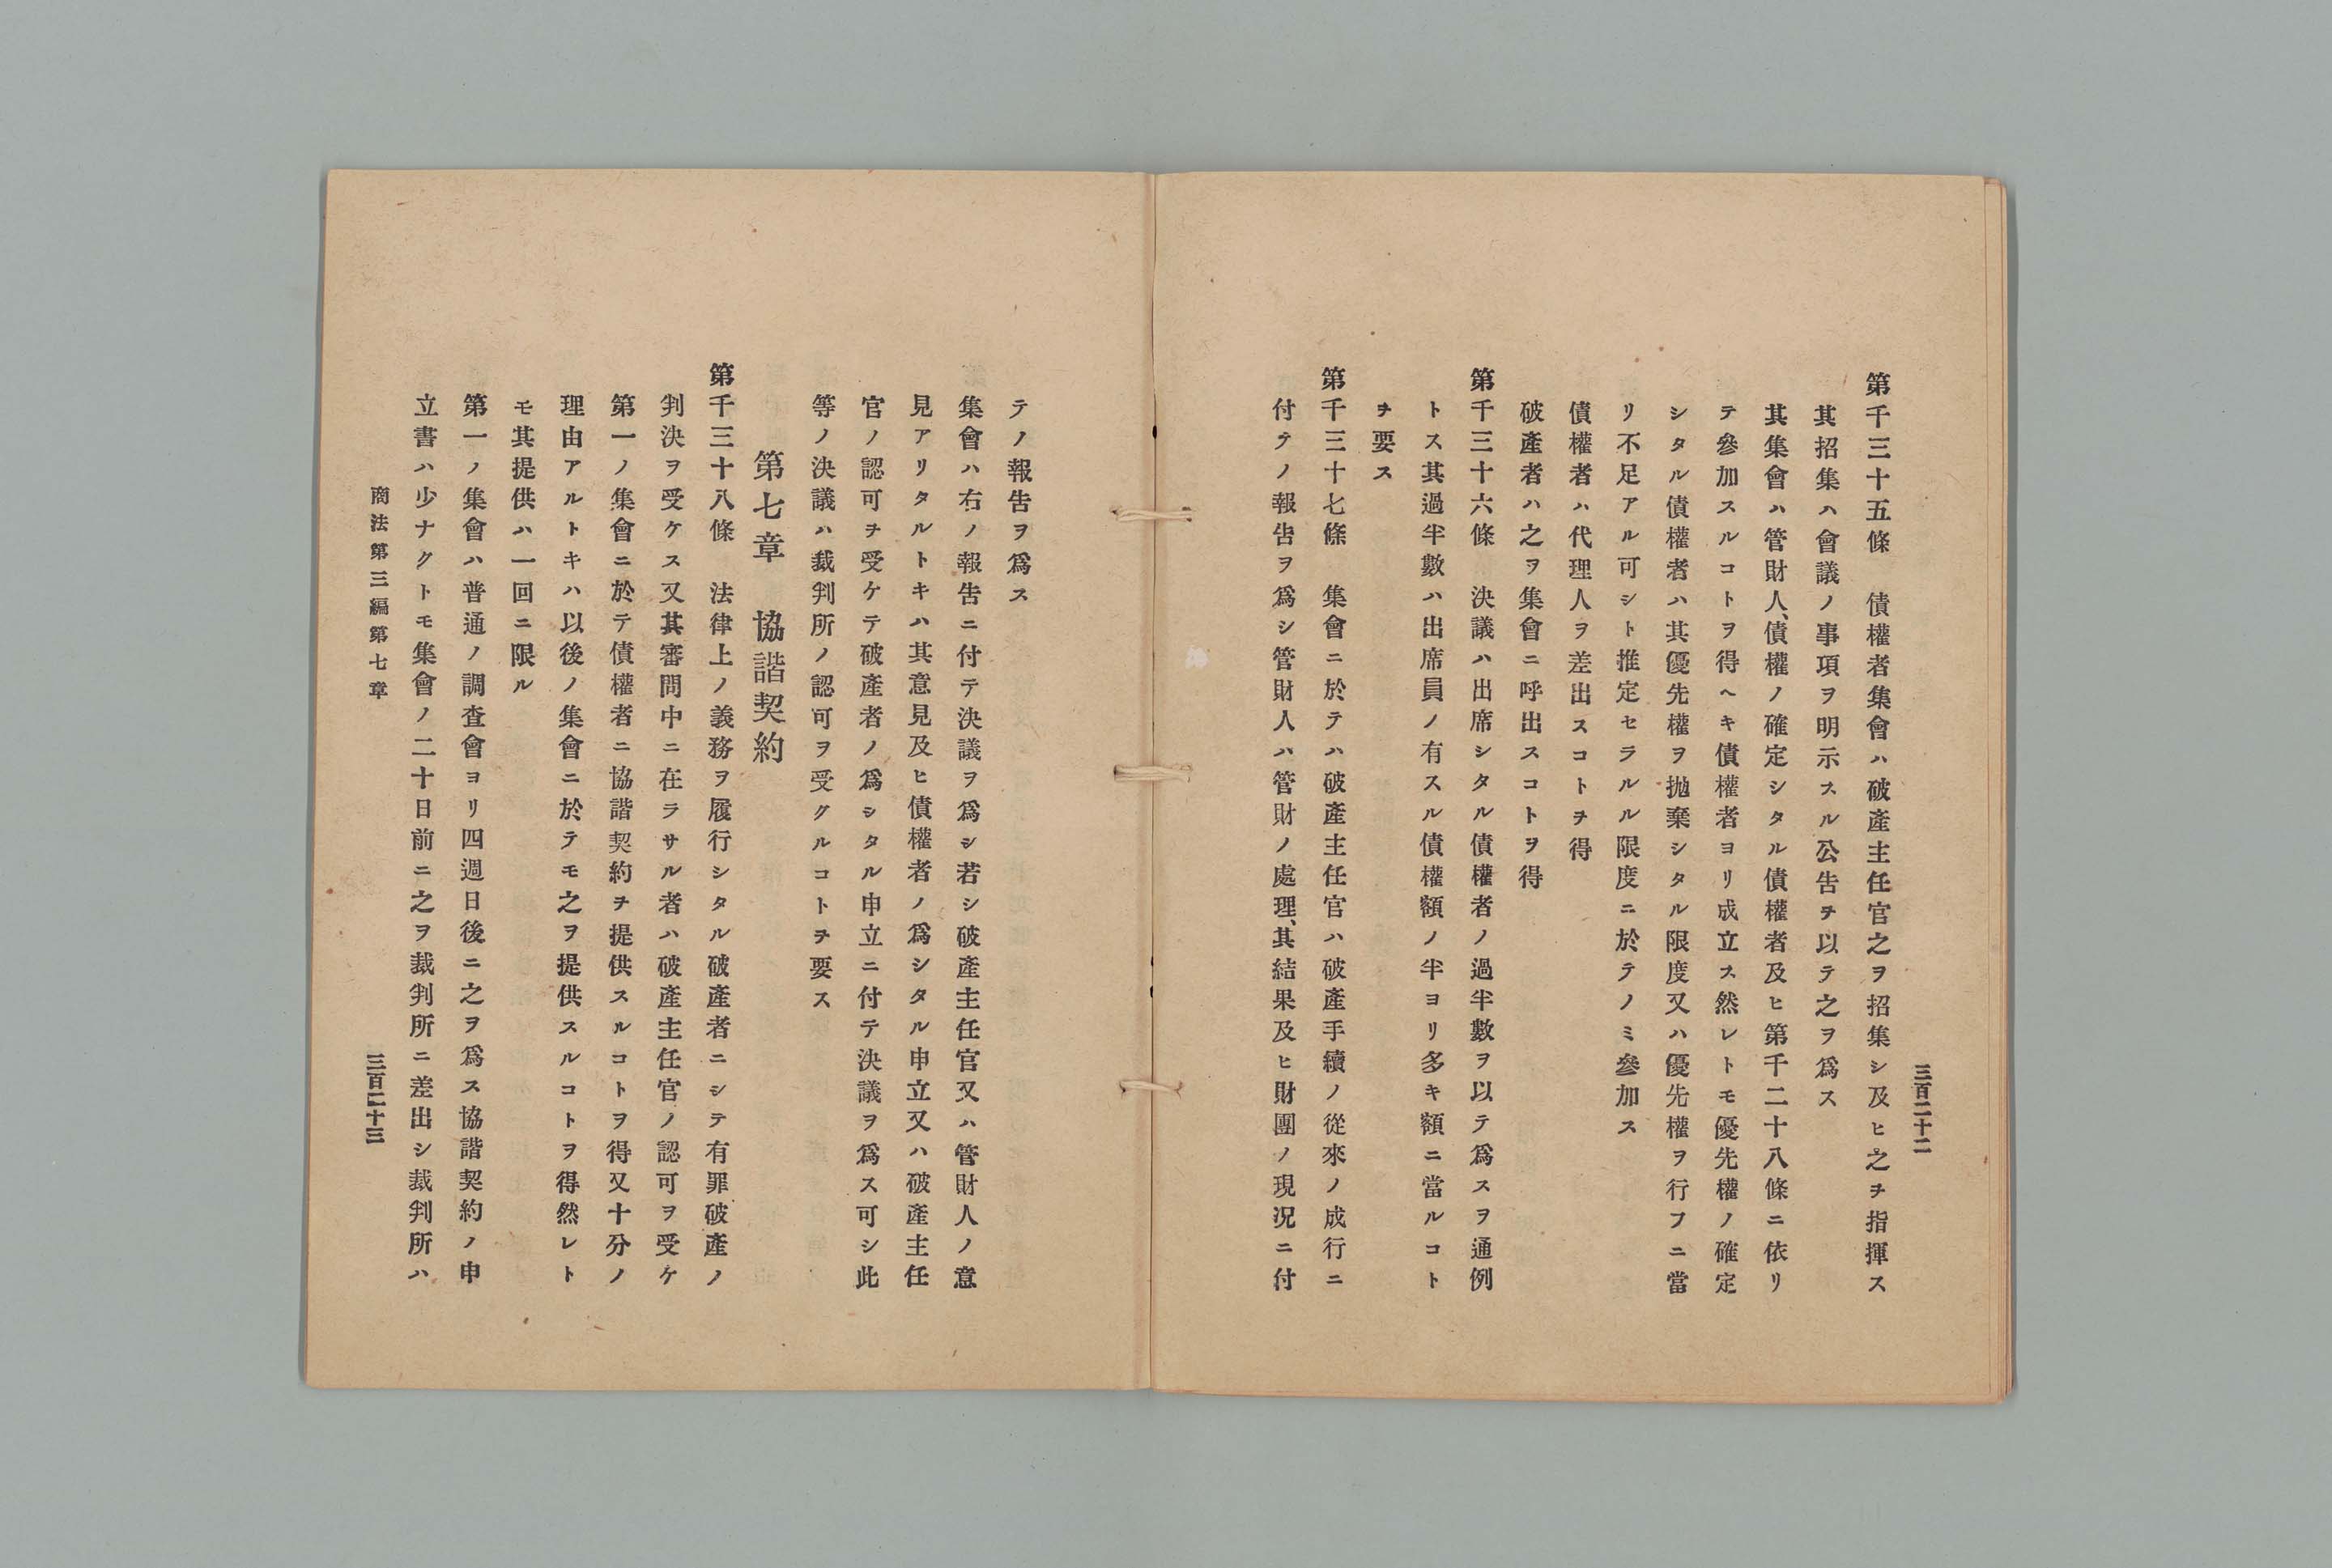 三百二十二
第千三十五條　債權者集會ハ破產主任官之ヲ招集シ及ヒ之ヲ指揮ス
其招集ハ會議ノ事項ヲ明示スル公吿ヲ以テ之ヲ爲ス
其集會ハ管財人、債權ノ確定シタル債權者及ヒ第千二十八條ニ依リ
テ參加スルコトヲ得ヘキ債權者ヨリ成立ス然レトモ優先權ノ確定
シタル債權者ハ其優先權ヲ抛棄シタル限度又ハ優先權ヲ行フニ當
リ不足アル可シト推定セラルル限度ニ於テノミ參加ス
債權者ハ代理人ヲ差出スコトヲ得
破產者ハ之ヲ集會ニ呼出スコトヲ得
第千三十六條　決議ハ出席シタル債權者ノ過半數ヲ以テ爲スヲ通例
トス其過半數ハ出席員ノ有スル債權額ノ半ヨリ多キ額ニ當ルコト
ヲ要ス
第千三十七條　集會ニ於テハ破產主任官ハ破產手續ノ從來ノ成行ニ
付テノ報吿ヲ爲シ管財人ハ管財ノ處理、其結果及ヒ財團ノ現況ニ付
テノ報吿ヲ爲ス
集會ハ右ノ報吿ニ付テ決議ヲ爲シ若シ破產主任官又ハ管財人ノ意
見アリタルトキハ其意見及ヒ債權者ノ爲シタル申立又ハ破產主任
官ノ認可ヲ受ケテ破產者ノ爲シタル申立ニ付テ決議ヲ爲ス可シ此
等ノ決議ハ裁判所ノ認可ヲ受クルコトヲ要ス
第七章　協諧契約
第千三十八條　法律上ノ義務ヲ履行シタル破產者ニシテ有罪破產ノ
判決ヲ受ケス又其審問中ニ在ラサル者ハ破產主任官ノ認可ヲ受ケ
第一ノ集會ニ於テ債權者ニ協諧契約ヲ提供スルコトヲ得又十分ノ
理由アルトキハ以後ノ集會ニ於テモ之ヲ提供スルコトヲ得然レト
モ其提供ハ一回ニ限ル
第一ノ集會ハ普通ノ調查會ヨリ四週日後ニ之ヲ爲ス協諧契約ノ申
立書ハ少ナクトモ集會ノ二十日前ニ之ヲ裁判所ニ差出シ裁判所ハ
商法第三編第七章
三百二十三